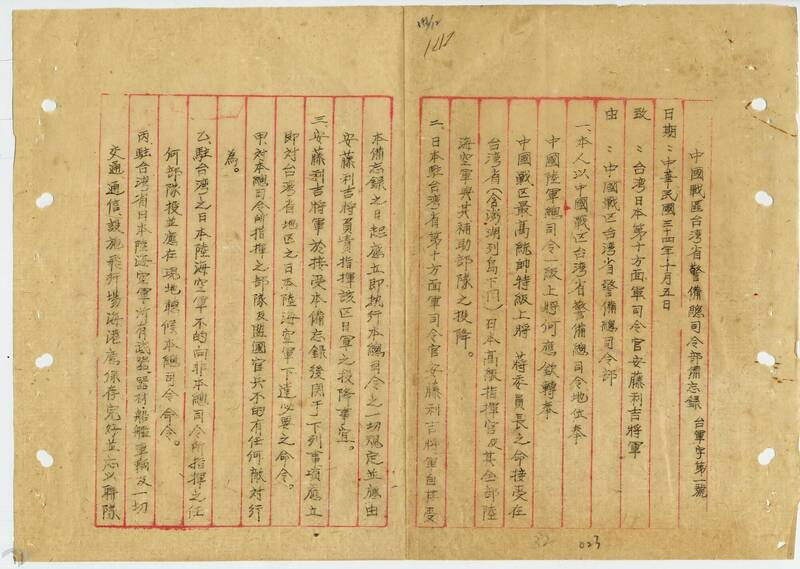 中國戰區台湾省警備總司令部備忘錄 台軍字第一號
日期：中華民國三十四年十月五日
致：台湾日本第十方面軍司令官安藤利吉將軍
由：中國戰區台湾省警備總司令部
一、本人以中國戰区台湾省警備總司令地位奉
中國陸軍總司令一级上將何應欽轉奉
中國戰区最高統帥特級上將 蔣委員長之命接受在
台湾省（含澎湖列島下同）日本高級指揮官及其全部陸
海空軍與其補助部隊之投降。
二、日本駐台湾省第十方面軍司令官安藤利吉將軍自接受
本備忘錄之日起應立即执行本總司令之一切規定並應由
安藤利吉將軍負責指揮該区日軍之投降事宜。
三、安藤利吉將軍於接受本備忘錄後関于下列事項應立
即对台湾省地区之日本陸海空軍下達必要之命令。
甲、对本總司令所指揮之部隊及盟國官兵不的有任何敵对行
為。
乙、駐台湾之日本陸海空軍不的向非本總司令所指揮之任
何部隊投並應在現地聽候本總司令命令。
丙、駐台湾省日本陸海空軍所有武器器材船艦車輛及一切
交通通信設施飛行場海港應保存完好並忘以聯隊
023
32